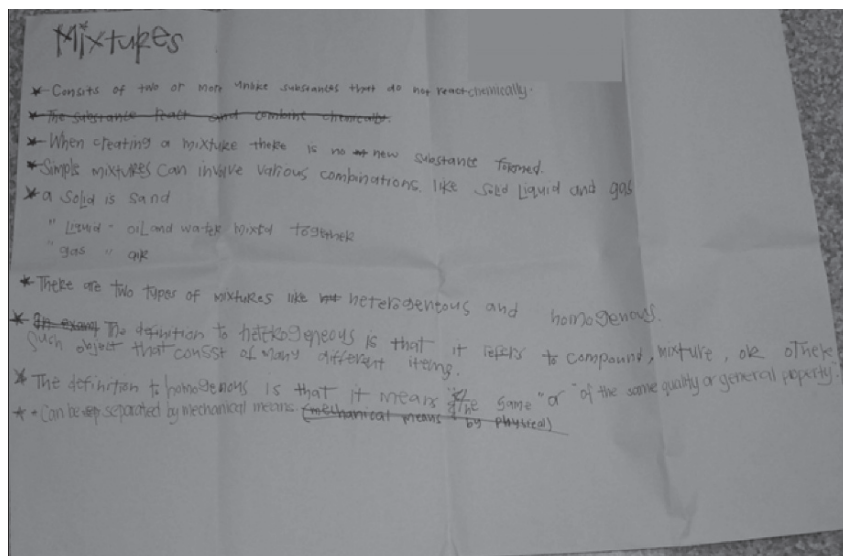 Mixtures
* Consits of two or more unlike substances that do not react chemically.
* The substance react and combine chemically.
* When creating a mixture there is no new substance formed.
* Simple mixtures can involve various combinations. like solid Liquid and gas
* a solid is sand
" Liquid - oil and water mixed together
"gas " air
* There are two types of mixtures like heterogeneous and homogenous.
* The definition to heterogeneous is that it refers to compound, mixture, or othere
such object that consist of many different items.
* The definition to homogenous is that it means "the same" or "of the same quality or general poperty."
* Can be separated by mechanical means. (mechanical means by physical)